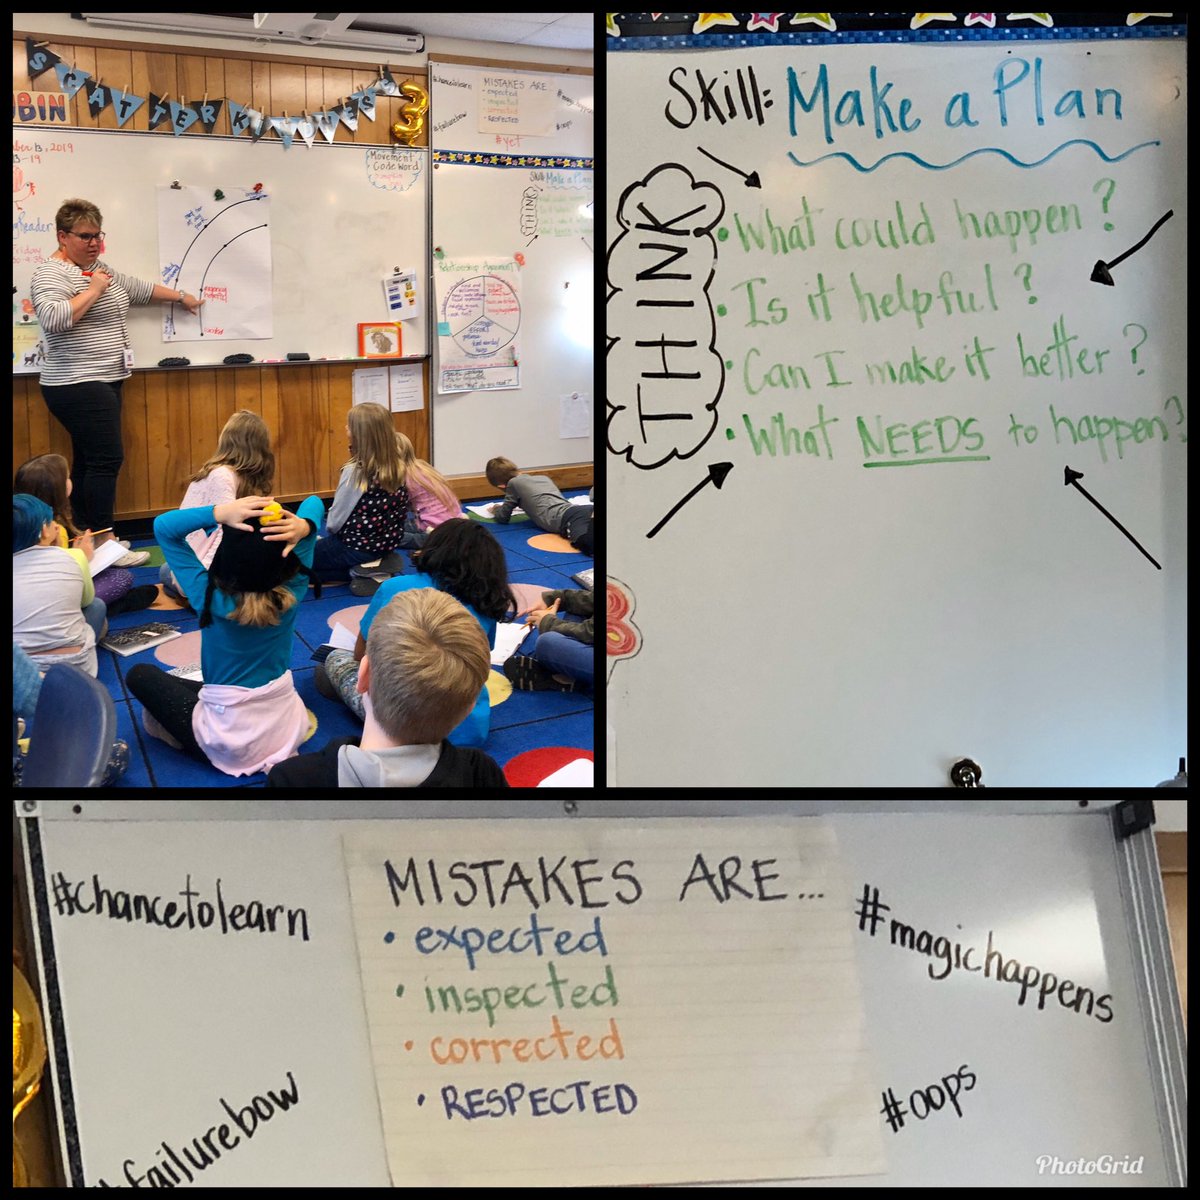 SCATTER KINDNESS
3
BIN
, 2019
-19
Reader
Friday
Movement
Code Word
MISTAKES ARE
• expected
• inspected
• corrected
• RESPECTED
#chancetolearn
#failurebow
#oops
#yet
Skill: Make a Plan
THINK
Relationship Agreement
Skill: Make a Plan
THINK
• What could happen?
• Is it helpful?
• Can I make it better?
• What NEEDS to happen?
#chancetolearn
MISTAKES ARE...
• expected
• inspected
• corrected
• RESPECTED
#magichappens
#failurebow
#oops
PhotoGrid